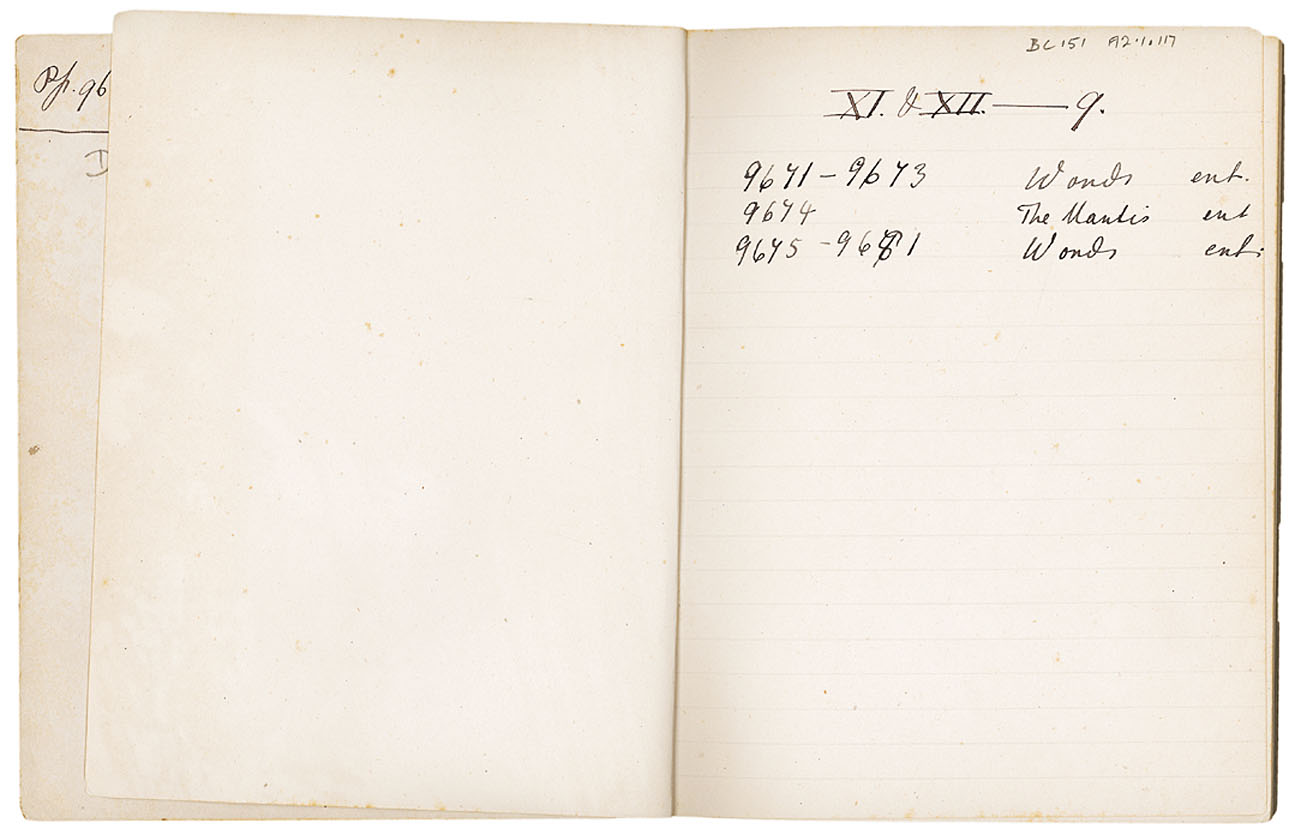 Pp. 96
D
BC 151 A2.1.117
XI. & XII. — 9.
9671 - 9673 Words ent.
9674 The Mantis ent
9675 - 9681 Words ent.